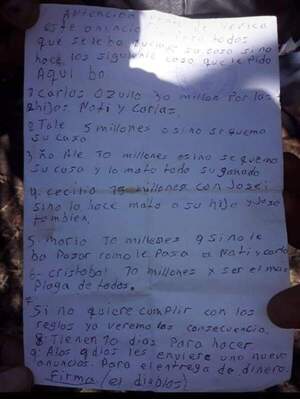 atencion
este anuncio todos
que se le ba quemar su casa si no
hace los siguiente cosa que le pido
Aqui ba
1 carlos ozullo 30 millon por las
2 hijos Nati y carlas
2 Tale 5 millones o si no se quema
su casa
3 ño Me 10 millones o si no se quema
su casa y lo mato todo su ganado
4. cecilio 15 millones con José
si no lo hace mato a su hijo y José
tambien,
5- mario 10 millones y si no le
ba pasar como le pasa a Nati y carla
6- cristobal 10 millones x ser el mas
plaga de todos.
7
Si no quiere cumplir con los
reglos ya veremos las consecuencia.
8: Tienen 10 dias para hacer
9: A los 9 dias les enviare uno nuevo
anuncios. Para el entrega de dinero.
Firma (el diablos)